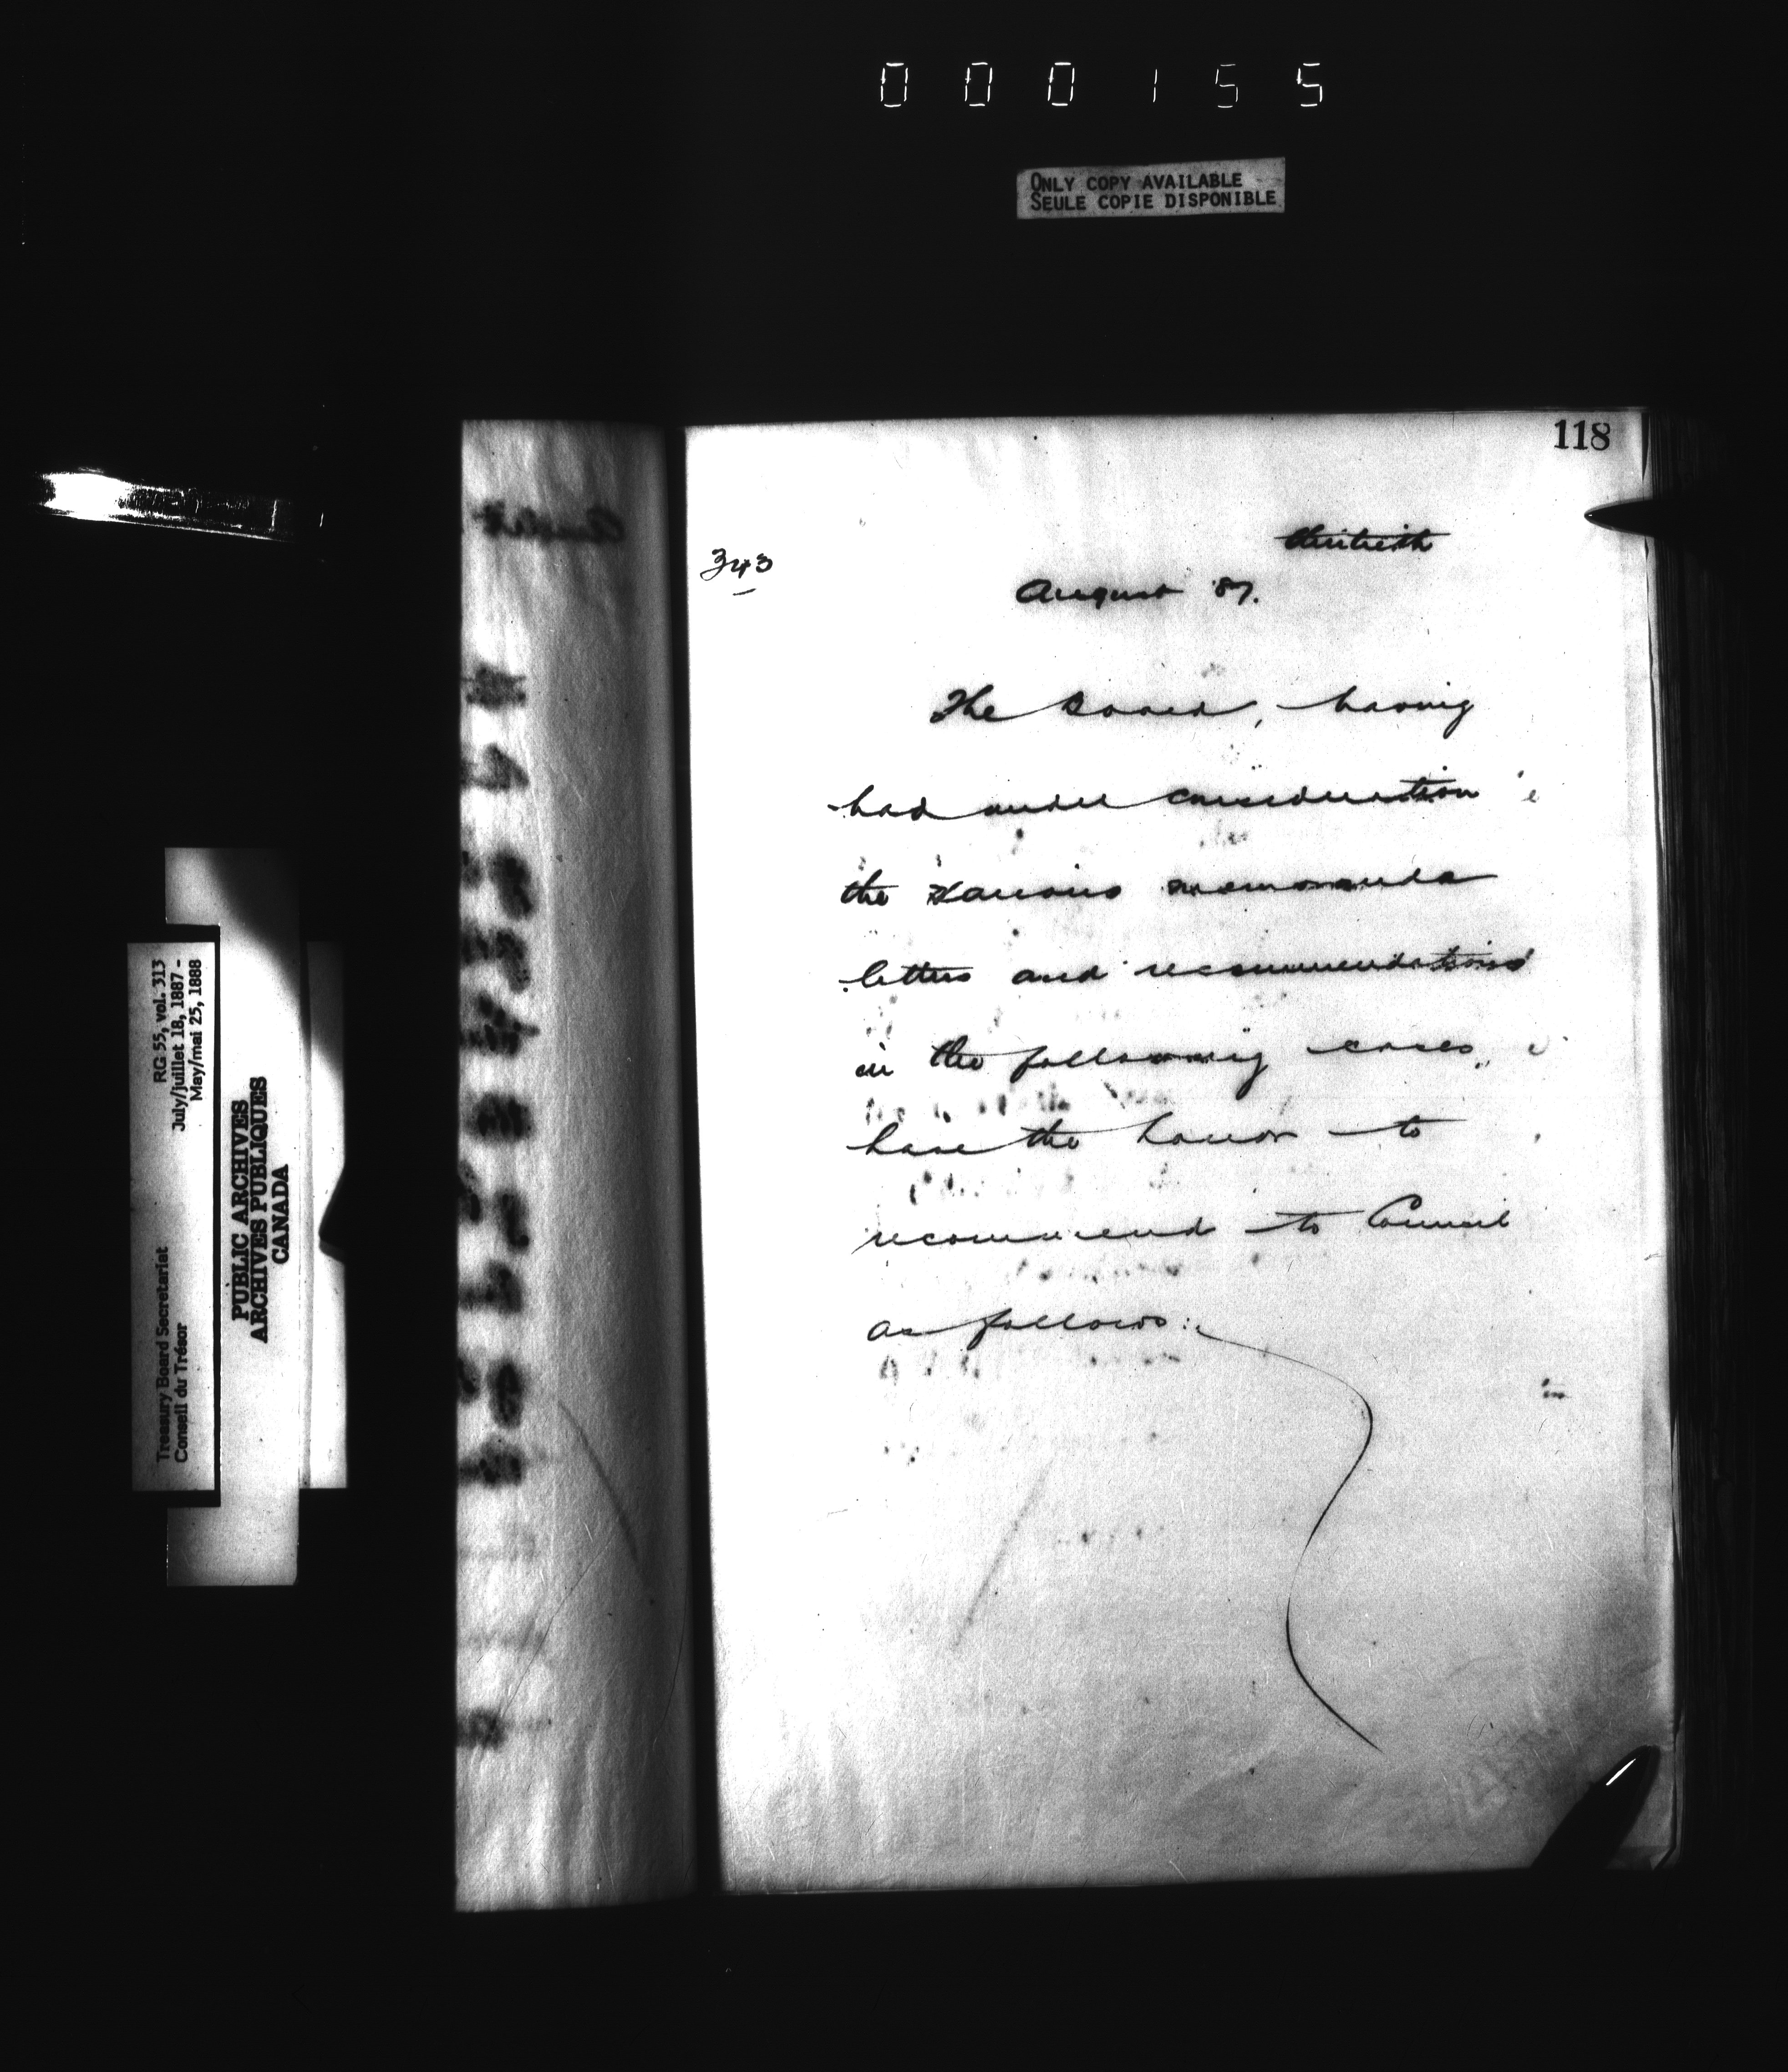 000155
ONLY COPY AVAILABLE
SEULE COPIE DISPONIBLE
118
343
thirtieth
August 87.
The Board, having
had under consideration
the various memoranda
letters and recommendations
in the following cases,
have the honor to
recommend to Council
as follows:
RG 55, vol. 313
July/juillet 18, 1887 -
May/mai 25, 1888
Treasury Board Secretariat
Conseil du Trésor
PUBLIC ARCHIVES
ARCHIVES PUBLIQUES
CANADA